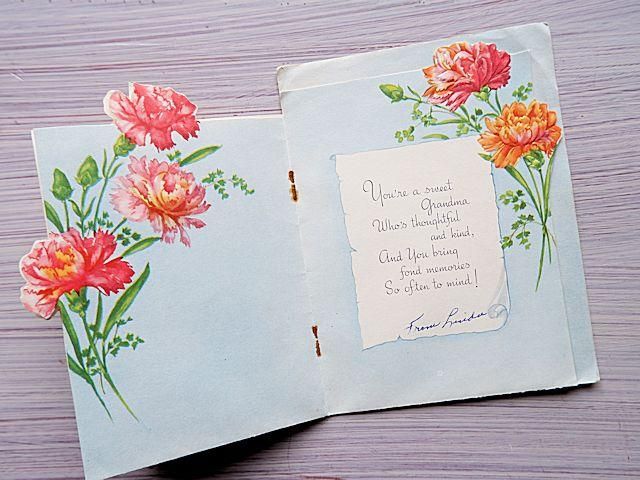 You're a sweet
Grandma
Who's thoughtful
and kind,
And You bring
fond memories
So often to mind!
From Linda